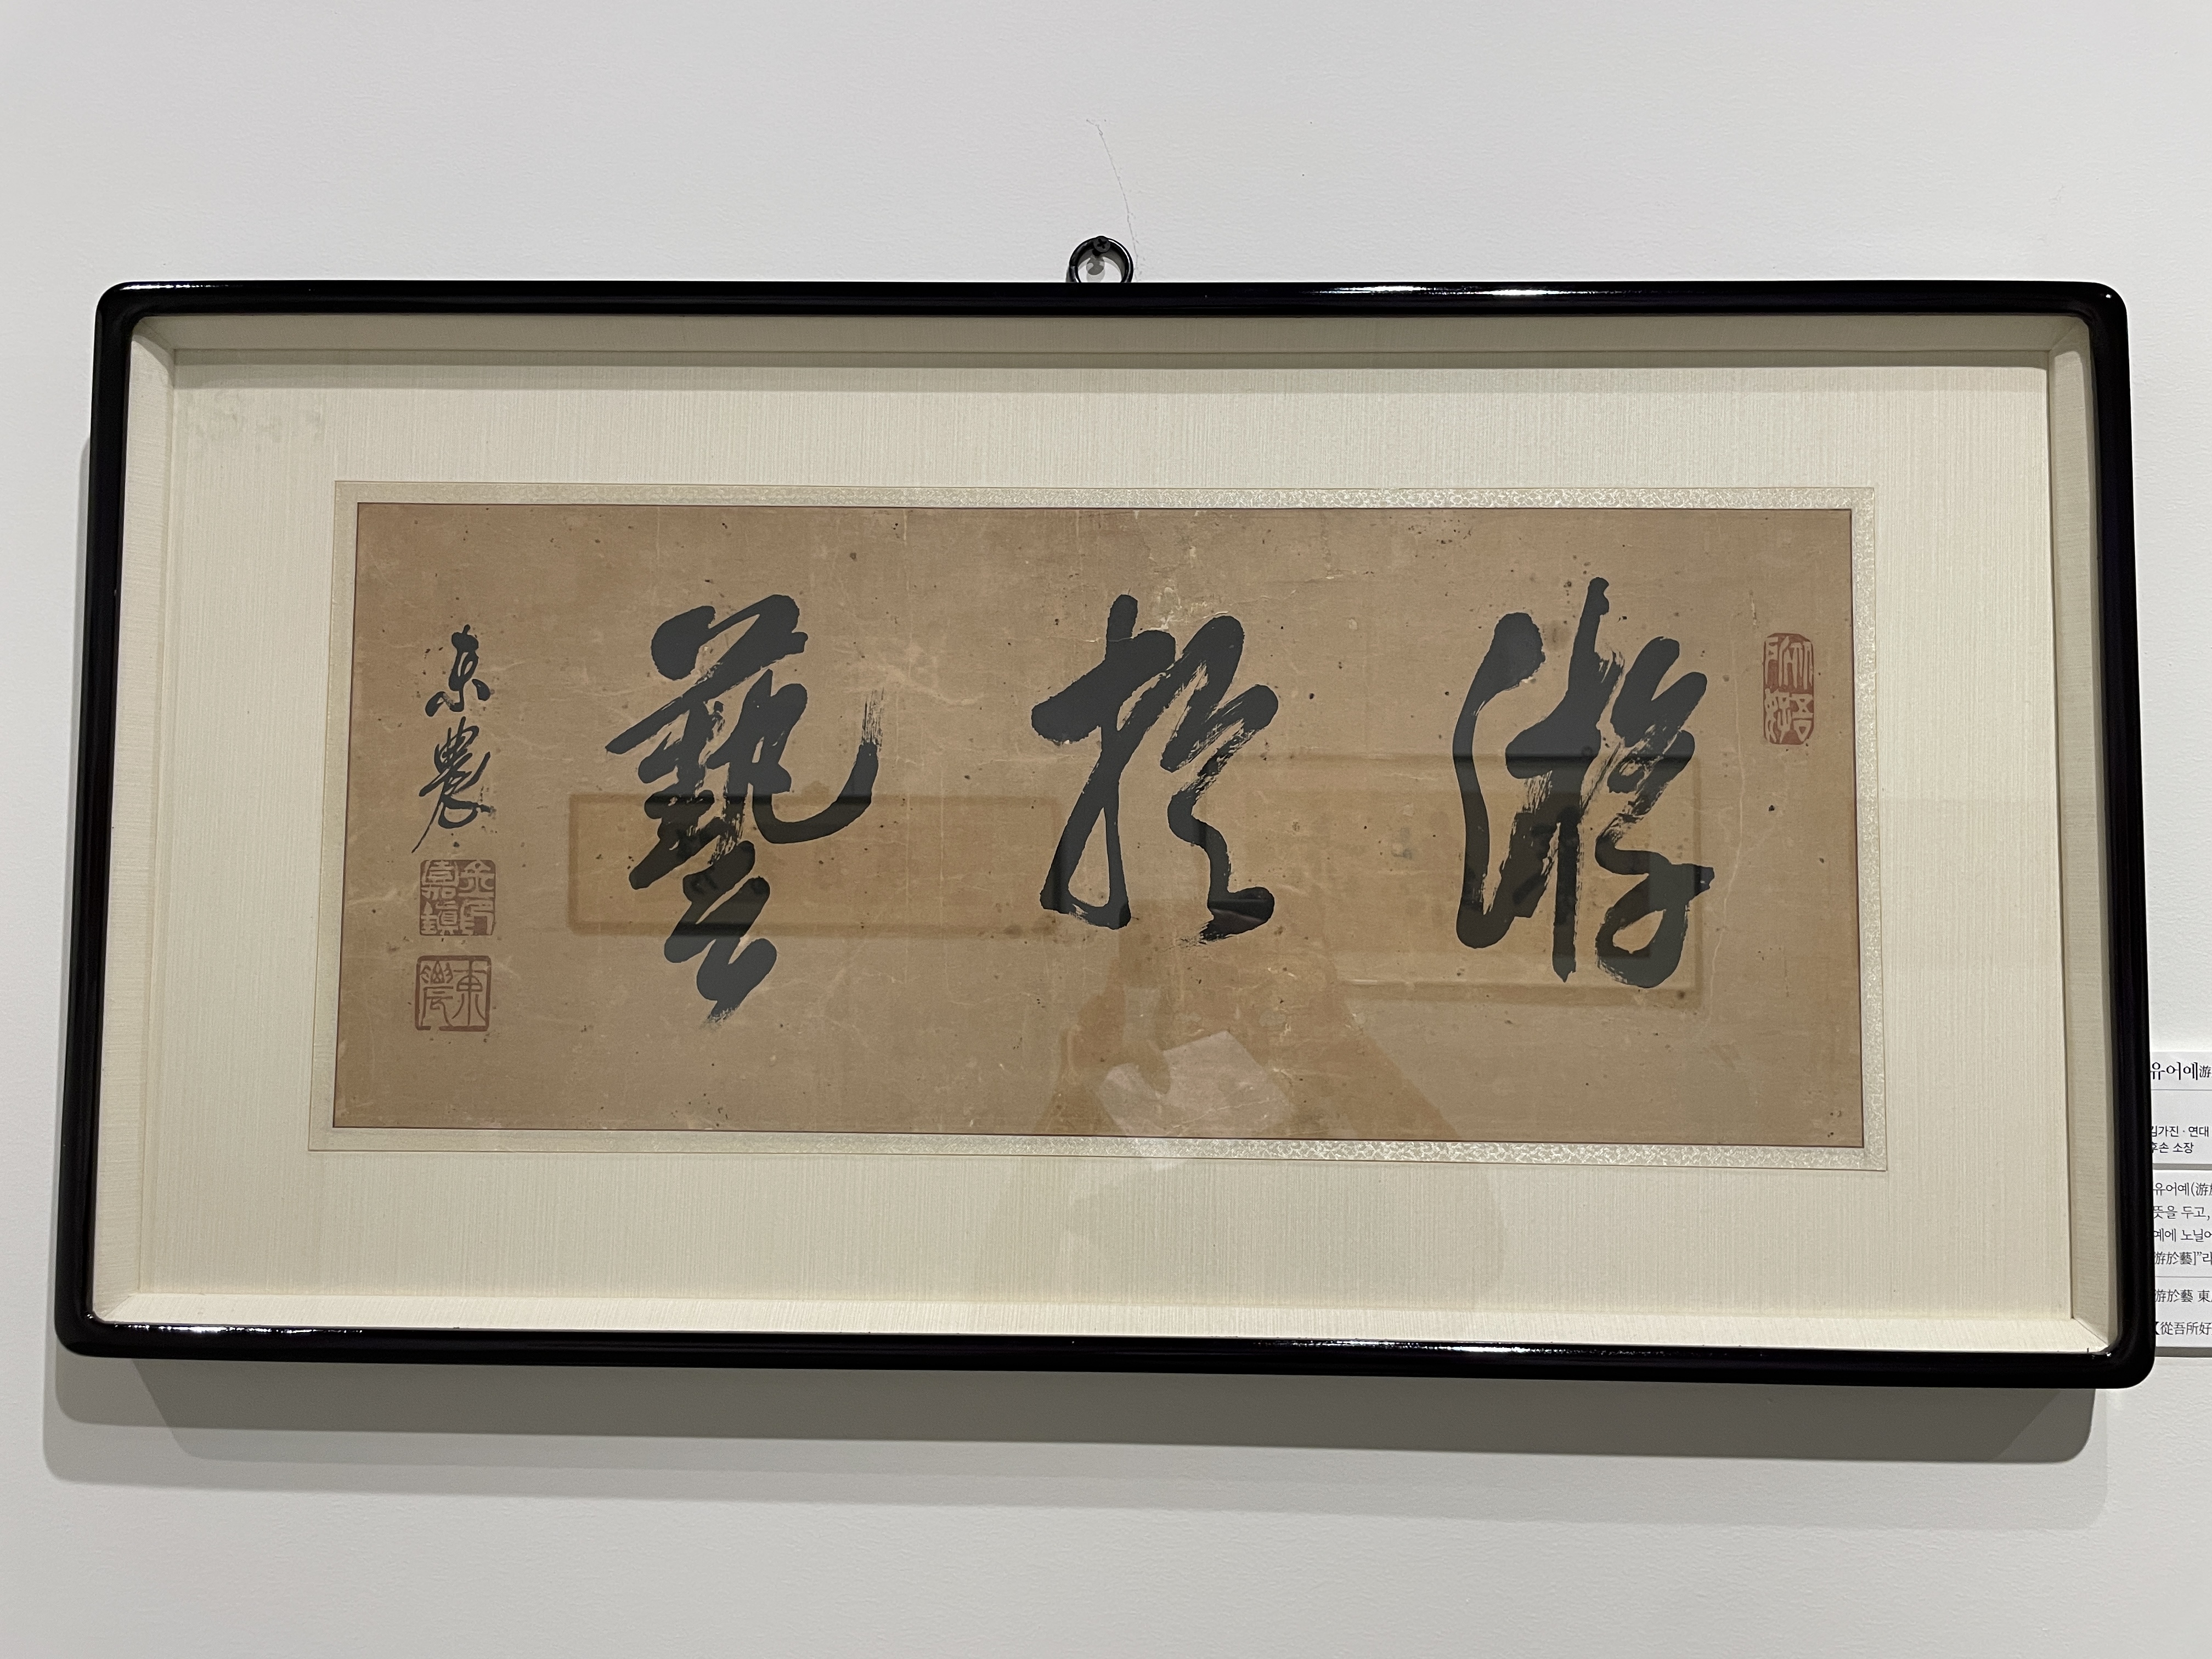 游於藝
東農
從吾所好
金嘉鎭印
東農
유어예游
김가진·연대
후손 소장
유어예(游於
뜻을 두고,
예에 노닐어
游於藝]”라
游於藝 東
【從吾所好